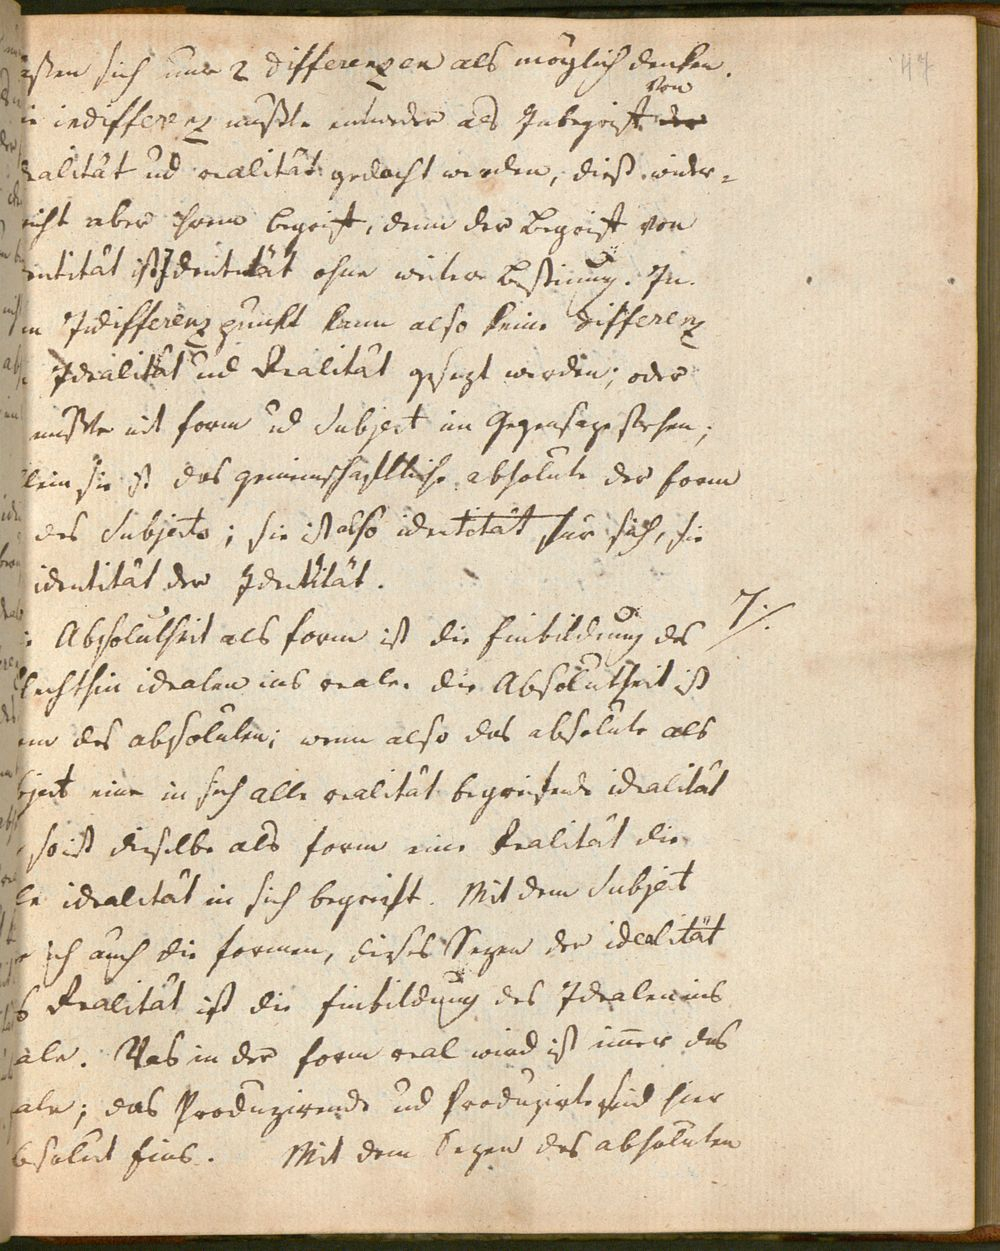 47
aßen sich nur 2 differenzen als möglich denken.
von
indifferenz mußte entweder als Inbegrif der
ealität ud realität gedacht werden, dieß wider-
richt aber ihrem begrif, denn der Begrif von
entität ist Identität ohne weitere Bestimung. In
m Indifferenz punkt kann also keine differenz
Idealität ud Realität gesezt werden; oder
müßte mit form ud Subject im Gegensaze stehen;
llein sie ist das gemeinschaftliche absolute der form
des Subjects; sie ist also identität für sich, sie
identität der Identität.
Absolutheit als form ist die Einbildung des
7/.
lechthin idealen ins reale. die Absolutheit ist
rm des absoluten; wenn also das absolute als
bject eine in sich alle realität begreifende idealität
so ist dieselbe als form eine Realität die
lle idealität in sich begreift. Mit dem Subject
ich auch die formen, dieses Sezen der idealität
s Realität ist die Einbildung des Idealen ins
ale. Was in der form real wird ist imer das
ale; das Produzirende ud Produzirte sind hier
bsolut Eins. Mit dem Sezen des absoluten